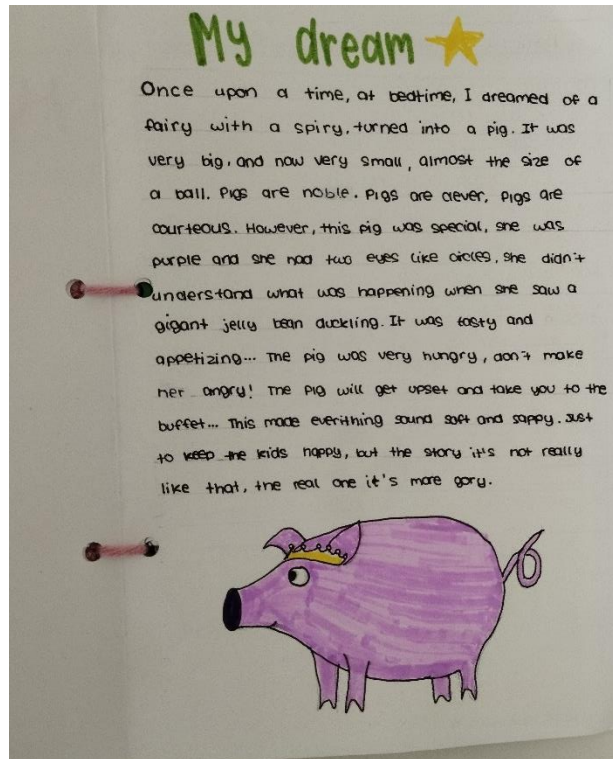 My dream
Once upon a time, at bedtime, I dreamed of a
fairy with a spiry, turned into a pig. It was
very big, and now very small, almost the size of
a ball. Pigs are noble. Pigs are clever, Pigs are
courteous. However, this pig was special, she was
purple and she had two eyes like circles, she didn't
understand what was happening when she saw a
gigant jelly bean duckling. It was tasty and
appetizing... The pig was very hungry, don't make
her angry! The pig will get upset and take you to the
buffet... This made everithing sound soft and sappy. Just
to keep the kids happy, but the story it's not really
like that, the real one it's more gory.